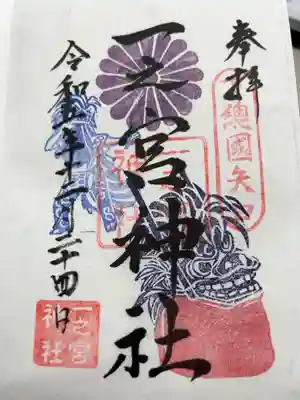 奉拝
總國矢
一之宮神社
令和元年十一月二十四日
一之宮
神社